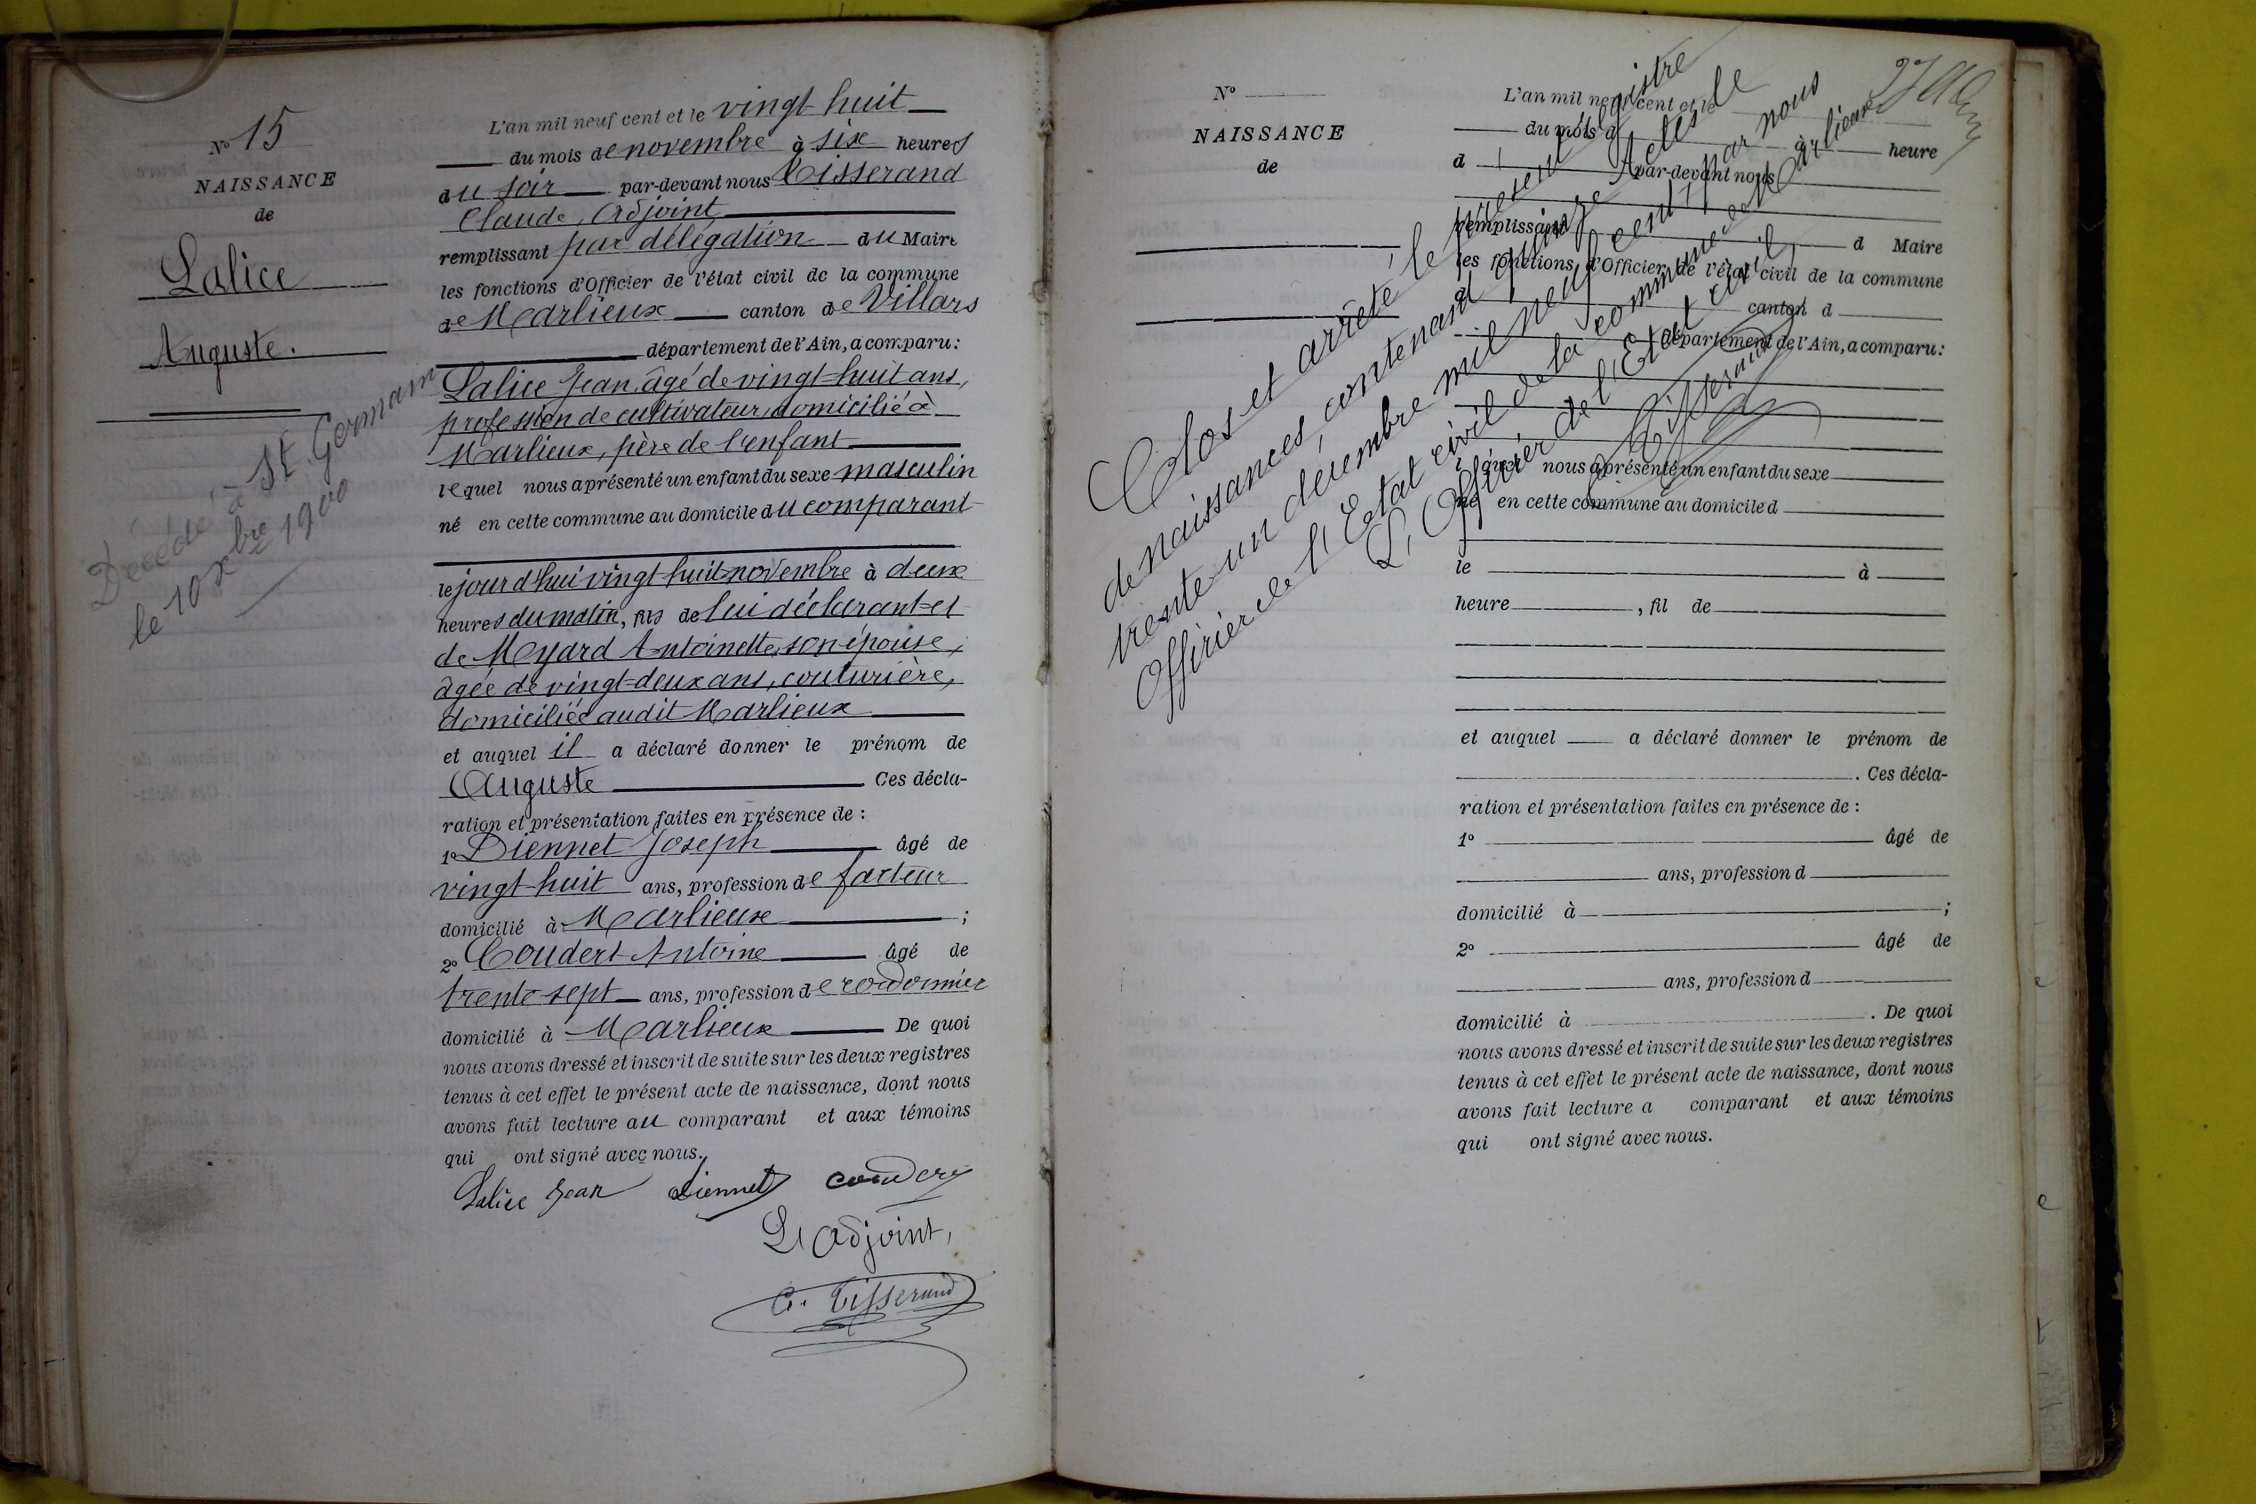 N° 15
NAISSANCE
de
Lalice
Auguste.
Décédé à St Germain
le 10 Xbre 1900
L'an mil neuf cent et le vingt-huit
du mois de novembre à six heures
du soir par-devant nous Tisserand
Claude, Adjoint
remplissant par délégation du Maire
les fonctions d'Officier de l'état civil de la commune
de Marlieux canton de Villars
département de l'Ain, a comparu:
Lalice Jean, âgé de vingt-huit ans,
profession de cultivateur, domicilié à
Marlieux, père de l'enfant
lequel nous a présenté un enfant du sexe masculin
né en cette commune au domicile du comparant
le jourd'hui vingt-huit novembre à deux
heures du matin, fils de lui déclarant et
de Moyard Antoinette, son épouse,
âgée de vingt-deux ans, couturière,
domiciliée audit Marlieux
et auquel il a déclaré donner le prénom de
Auguste Ces décla-
ration et présentation faites en présence de :
1° Diennet Joseph âgé de
vingt-huit ans, profession de facteur
domicilié à Marlieux ;
2° Coudert Antoine âgé de
trente-sept ans, profession de cordonnier
domicilié à Marlieux De quoi
nous avons dressé et inscrit de suite sur les deux registres
tenus à cet effet le présent acte de naissance, dont nous
avons fait lecture au comparant et aux témoins
qui ont signé avec nous.
Lalice Jean Diennet Coudert
L'Adjoint,
C. Tisserand
N°
NAISSANCE
de
L'an mil neuf cent et le
du mois d à heure
d par-devant nous
remplissant d Maire
les fonctions d'Officier de l'état civil de la commune
d canton d
département de l'Ain, a comparu:
quel nous a présenté un enfant du sexe
né en cette commune au domicile d
le à
heure , fil de
et auquel a déclaré donner le prénom de
. Ces décla-
ration et présentation faites en présence de :
1° âgé de
ans, profession d
domicilié à ;
2° âgé de
ans, profession d
domicilié à . De quoi
nous avons dressé et inscrit de suite sur les deux registres
tenus à cet effet le présent acte de naissance, dont nous
avons fait lecture a comparant et aux témoins
qui ont signé avec nous.
Clos et arrêté, le présent registre
de naissances, contenant quinze Actes, le
trente-un décembre mil neuf cent, par nous
Officier de l'Etat civil de la commune de Marlieux
L'Officier de l'Etat civil,
C. Tisserand